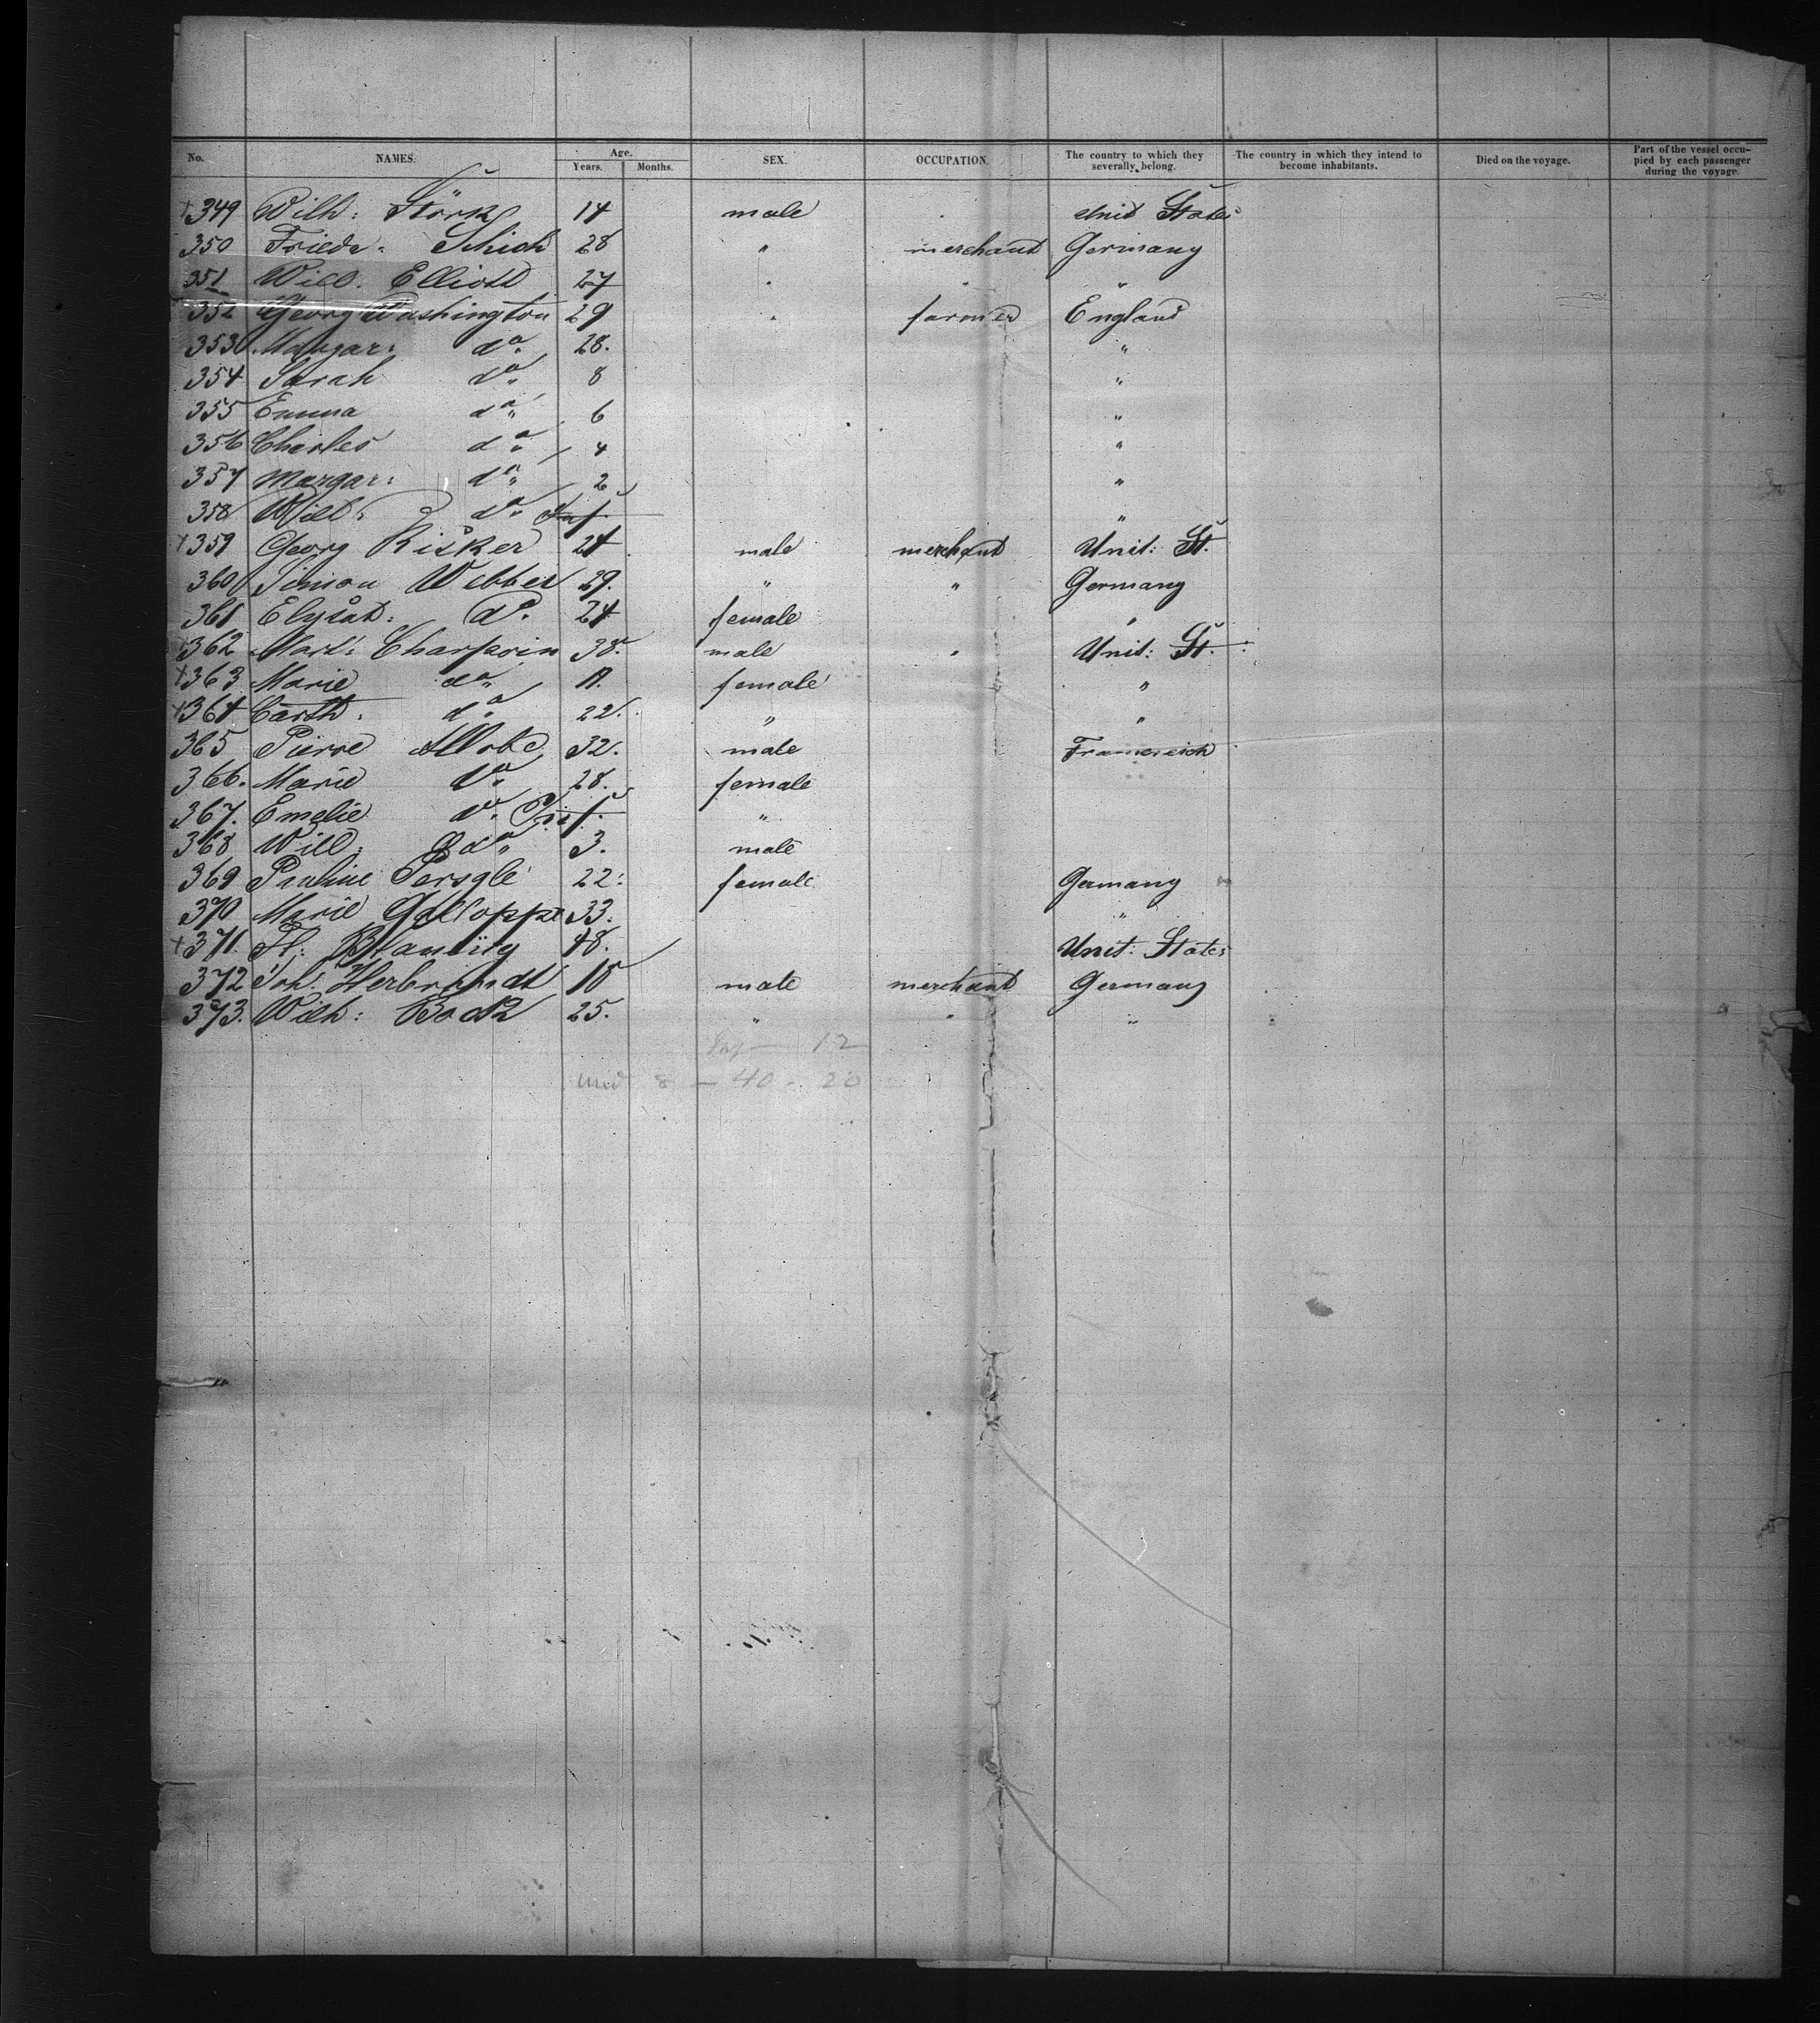 No. NAMES. Age. Years. Months. SEX. OCCUPATION. The country to which they severally belong. The country in which they intend to become inhabitants. Died on the voyage. Part of the vessel occu-pied by each passenger during the voyage.
+349 Wilh: Störk 14 male Unit States
350 Friedr. Schich 28 " merchant Germany
351 Will. Elliott 27 " " "
352 Georg Washington 29 " farmer England
353 Margar: do. 28. "
354 Sarah do. 8 "
355 Emma do. 6 "
356 Charles do. 4 "
357 Margar: do. 2 "
358 Will: do. Inf. "
+359 Georg Risker 24 male merchant Unit: St.
360 Simon Webber 29. " " Germany
361 Elysab: do. 24 female "
+362 Mart: Charpoin 38. male " Unit: St.
+363 Marie do. 11. female "
+364 Carth: do. 22. " "
365 Pierre 32. male Francreich
366. Marie do. 28. female
367. Emelie do. Inf. "
368 Will: do. 3. male
369 Pauline Persgle 22. female Germany
370 Marie Galloppe 33. "
+371. Fl: 48. Unit: States
372 Joh. Herbrandt 18 male merchant Germany
373. Wilh: Bock 25. " " "
Inf 12
und 8 - 40 - 20